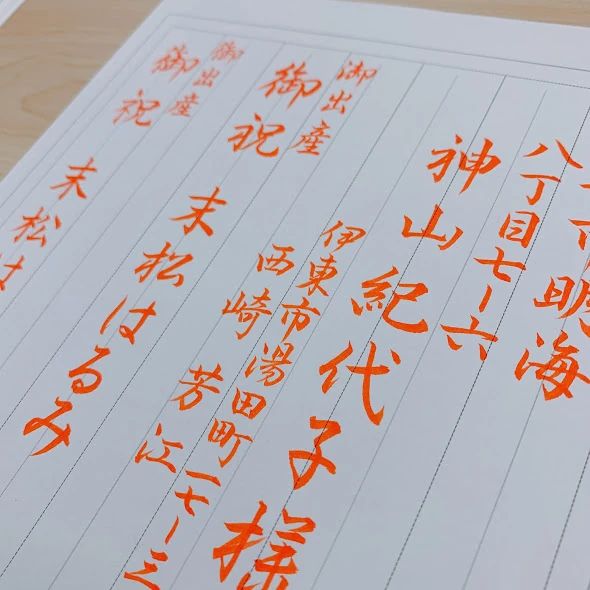 市明海
八丁目七ー六
神山紀代子様
伊東市湯田町一七ー三
西崎芳江
御出産
御祝
末松はるみ
御出産
御祝
末松は